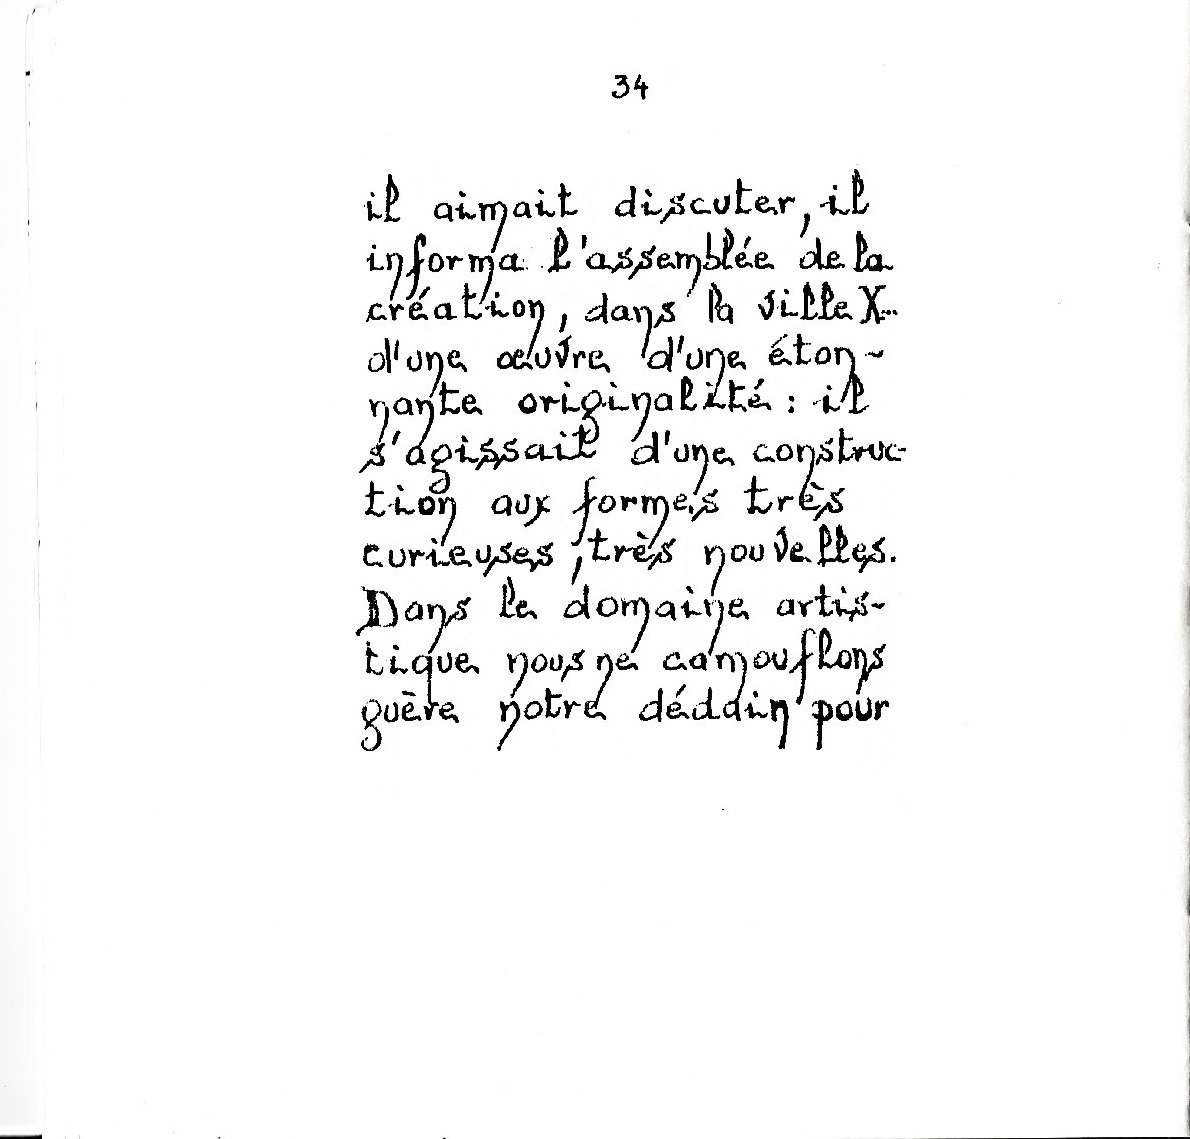 34
il aimait discuter, il
informa l'assemblée de la
création, dans la ville X...
d'une œuvre d'une éton-
nante originalité : il
s'agissait d'une construc-
tion aux formes très
curieuses, très nouvelles.
Dans le domaine artis-
tique nous ne camouflons
guère notre dédain pour